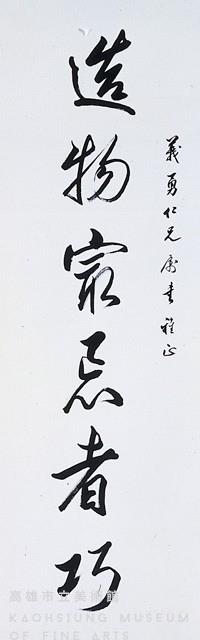 義勇仁兄屬書雅正
造物最忌者巧
高雄市立美術館
KAOHSIUNG MUSEUM
OF FINE ARTS